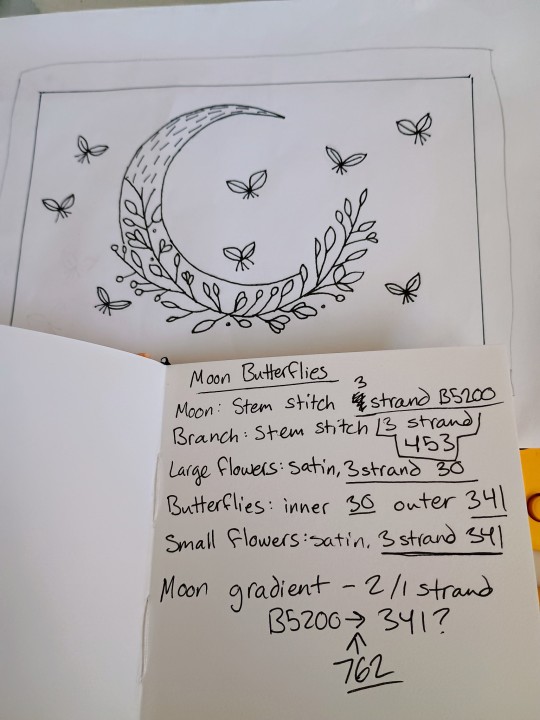 Moon Butterflies
Moon: Stem stitch 3 strand B5200
Branch: Stem stitch 3 strand
453
Large flowers: satin, 3 strand 30
Butterflies: inner 30 outer 341
Small flowers: satin, 3 strand 341
Moon gradient - 2/1 strand
B5200 → 341?
↑
762